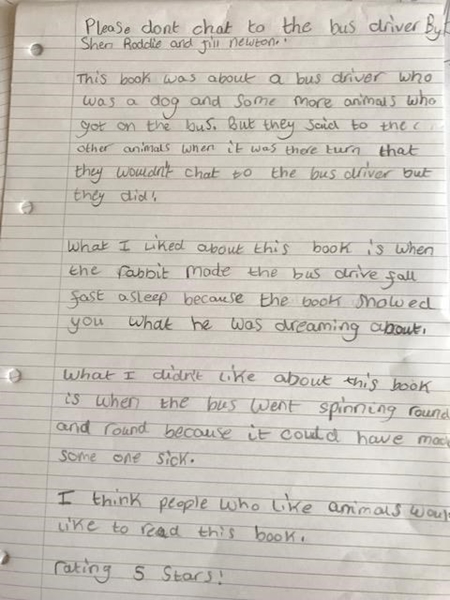 Please dont chat to the bus driver By
Shen Roddie and jill newton..
This book was about a bus driver who
was a dog and some more animals who
got on the bus. But they said to the
other animals when it was there turn that
they wouldn't chat to the bus driver but
they did!
What I liked about this book is when
the rabbit made the bus drive fall
fast asleep because the book showed
you what he was dreaming about.
What I didn't like about this book
is when the bus went spinning round
and round because it could have mad
some one sick.
I think people who like animals woul
like to read this book.
rating 5 stars!